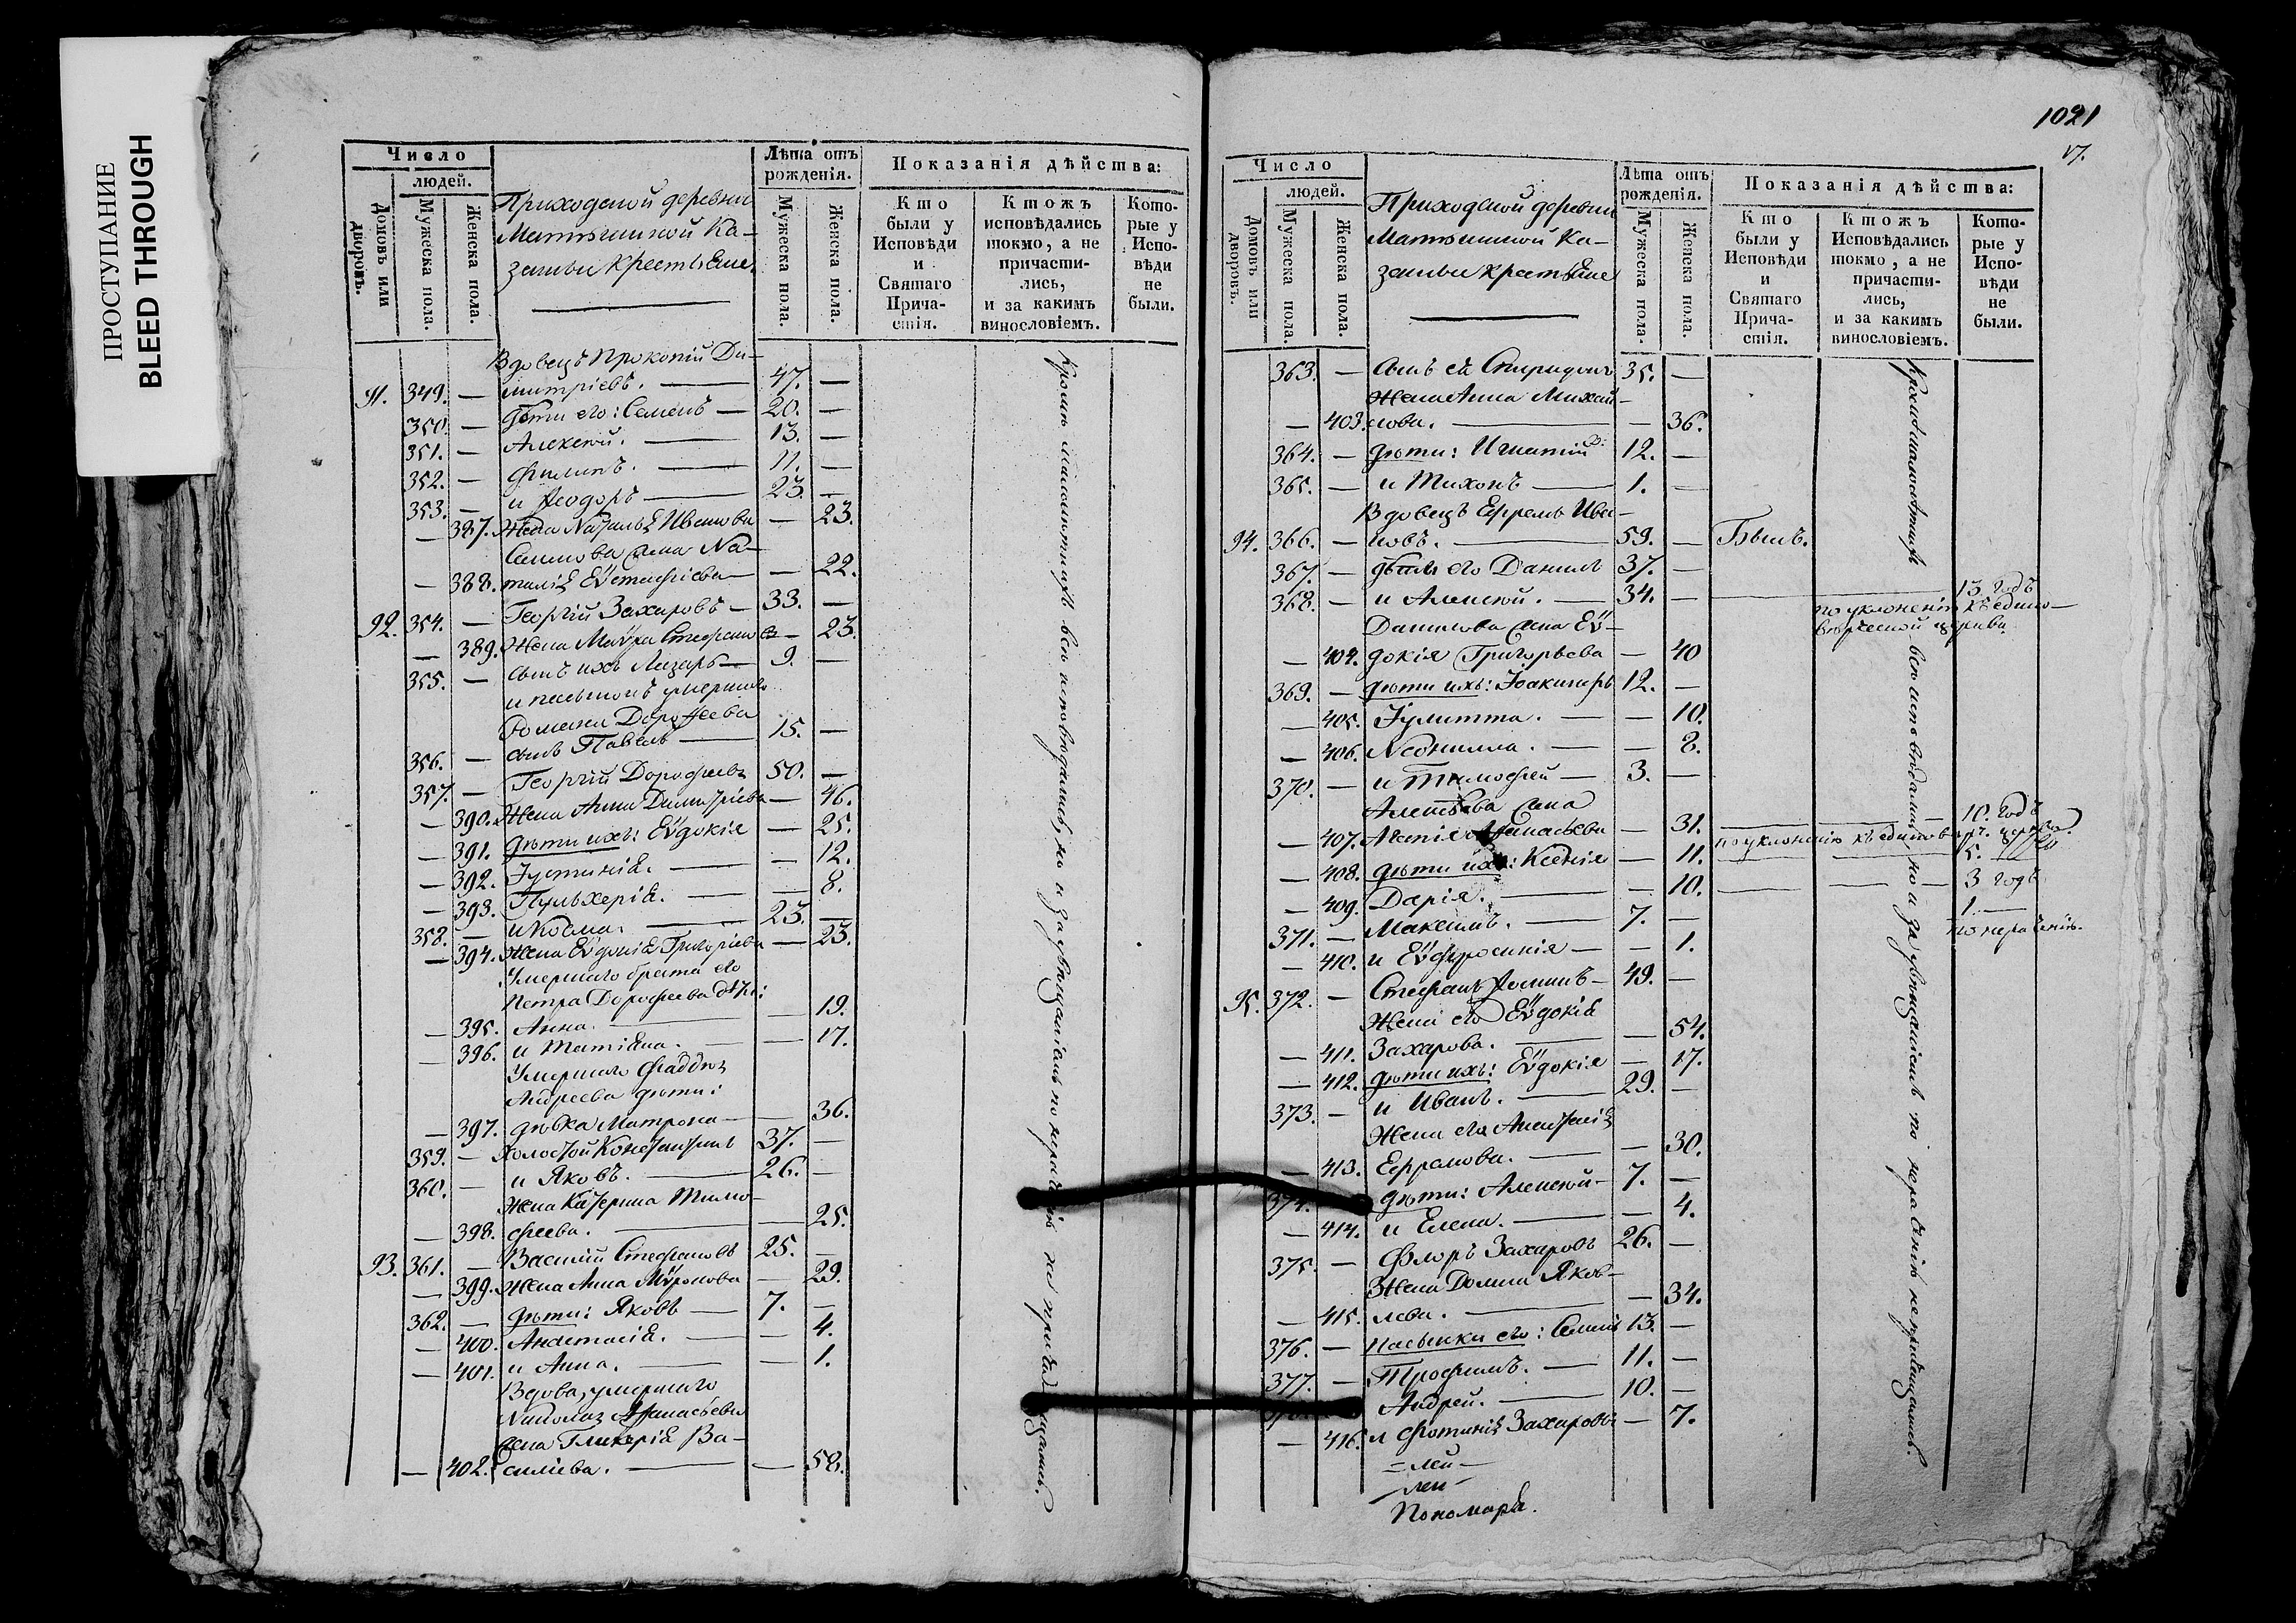 ПРОСТУПАНИЕ
BLEED THROUGH
Число
людей.
Домовъ или дворовъ.
Мужеска пола.
Женска пола.
Приходской деревни
Ка-
зенные крестьяне
Лѣта отъ рожденія.
Мужеска пола.
Женска пола.
Показанія дѣйства:
Кто были у Исповѣди и Святаго Прича-
стія.
Ктожъ исповѣдались токмо, а не причасти-
лись, и за какимъ винословіемъ.
Кото-
рые у Испо-
вѣди не были.
Вдовецъ Прокопій Ди-
91. 349. — митріевъ. — 47. —
350. — дѣти его: Семенъ — 20. —
351. — Алексѣй. — 13. —
352. — Филипъ. — 11. —
353. — и Ѳеодоръ — 23. —
— 387. Жена Наталья Иванова — 23.
Семенова жена На-
— 388. талія Еѵстафіева — 22.
92. 354. — Георгій Захаровъ — 33. —
— 389. Жена Маѵра Стефанова — 23.
355. — сынъ ихъ Лазарь — 9. —
и пасынокъ умершаго
Романа Дороѳеева
356. — сынъ Павелъ — 15. —
357. — Георгій Дорофеевъ 50. —
— 390. Жена Анна Димитріева — 46.
— 391. дѣти ихъ: Еѵдокія — 25.
— 392. Іустинія. — 12.
— 393. Пульхерія. — 8.
358. — и Козма. — 23. —
— 394. Жена Еѵдокія Григоріева — 23.
Умершаго брата его
Петра Дорофеева дѣти:
— 395. Анна. — 19.
— 396. и Татіяна. — 17.
Умершаго Фаддѣя
Андреева дѣти:
— 397. дѣвка Матрона — 36.
359. — Холостой Константинъ 37. —
360. — и Яковъ. — 26. —
Жена Катерина Тимо-
— 398. феева. — 25.
93. 361. — Василій Стефановъ 25. —
— 399. Жена Анна Мѵронова — 29.
362. — дѣти: Яковъ — 7. —
— 400. Анастасія. — 4.
— 401. и Анна. — 1.
Вдова, умершаго
Николая Аѳанасьева
жена Гликерія Ва-
— 402. силіева. — 58.
Кромѣ малолѣтнихъ всѣ исповѣдались, но и за увѣщаніемъ по нераченію не причащались.
1021
Число
людей.
Домовъ или дворовъ.
Мужеска пола.
Женска пола.
Приходской деревни
Ка-
зенные крестьяне
Лѣта отъ рожденія.
Мужеска пола.
Женска пола.
Показанія дѣйства:
Кто были у Исповѣди и Святаго Прича-
стія.
Ктожъ Исповѣдались токмо, а не причасти-
лись, и за какимъ винословіемъ.
Кото-
рые у Испо-
вѣди не были.
363. — Сынъ ея Спиридонъ 35. —
Жена Анна Михай-
— 403. лова. — 36.
364. — дѣти: Игнатій 12. —
365. — и Тихонъ — 1. —
Вдовецъ Ефремъ Ива-
94. 366. — новъ. — 59. — Былъ.
367. — дѣти его Данилъ 37. —
368. — и Алексѣй. — 34. — 13 годъ
по уклоненію къ едино-
вѣрческой церкви.
Данилова жена Еѵ-
— 404. докія Григорьева — 40
369. — дѣти ихъ: Іоакимъ 12. —
— 405. Іулитта. — 10.
— 406. Неонилла. — 8.
370. — и Тимофей — 3. —
Алексѣева жена
— 407. Аѳанасьева — 31. — 10. годъ
по уклоненію къ единовѣрч. церкви.
— 408. дѣти ихъ: Ксенія — 11. — 5.
— 409. Дарія. — 10. — 3 годъ
371. — Максимъ. — 7. — 1.
по нераченію.
— 410. и Еѵфросинія — 1.
95. 372. — Стефанъ Ѳоминъ — 49. —
Жена его Еѵдокія
— 411. Захарова. — 54.
— 412. дѣти ихъ: Еѵдокія — 17.
373. — и Иванъ. — 29. —
Жена его Анастасія
— 413. Ефремова. — 30.
374. дѣти: Алексѣй — 7. —
— 414. и Елена. — 4.
375. — Флоръ Захаровъ 26. —
Жена Домна Яков-
— 415. лева. — 34.
376. — Пасынки его: Семенъ 13. —
377. — Трофимъ. — 11. —
Андрей. — 10. —
— 416. и Фотинія Захаровы — 7.
Кромѣ малолѣтнихъ всѣ исповѣдались, но и за увѣщаніемъ по нераченію не причащались.
Пономарь.